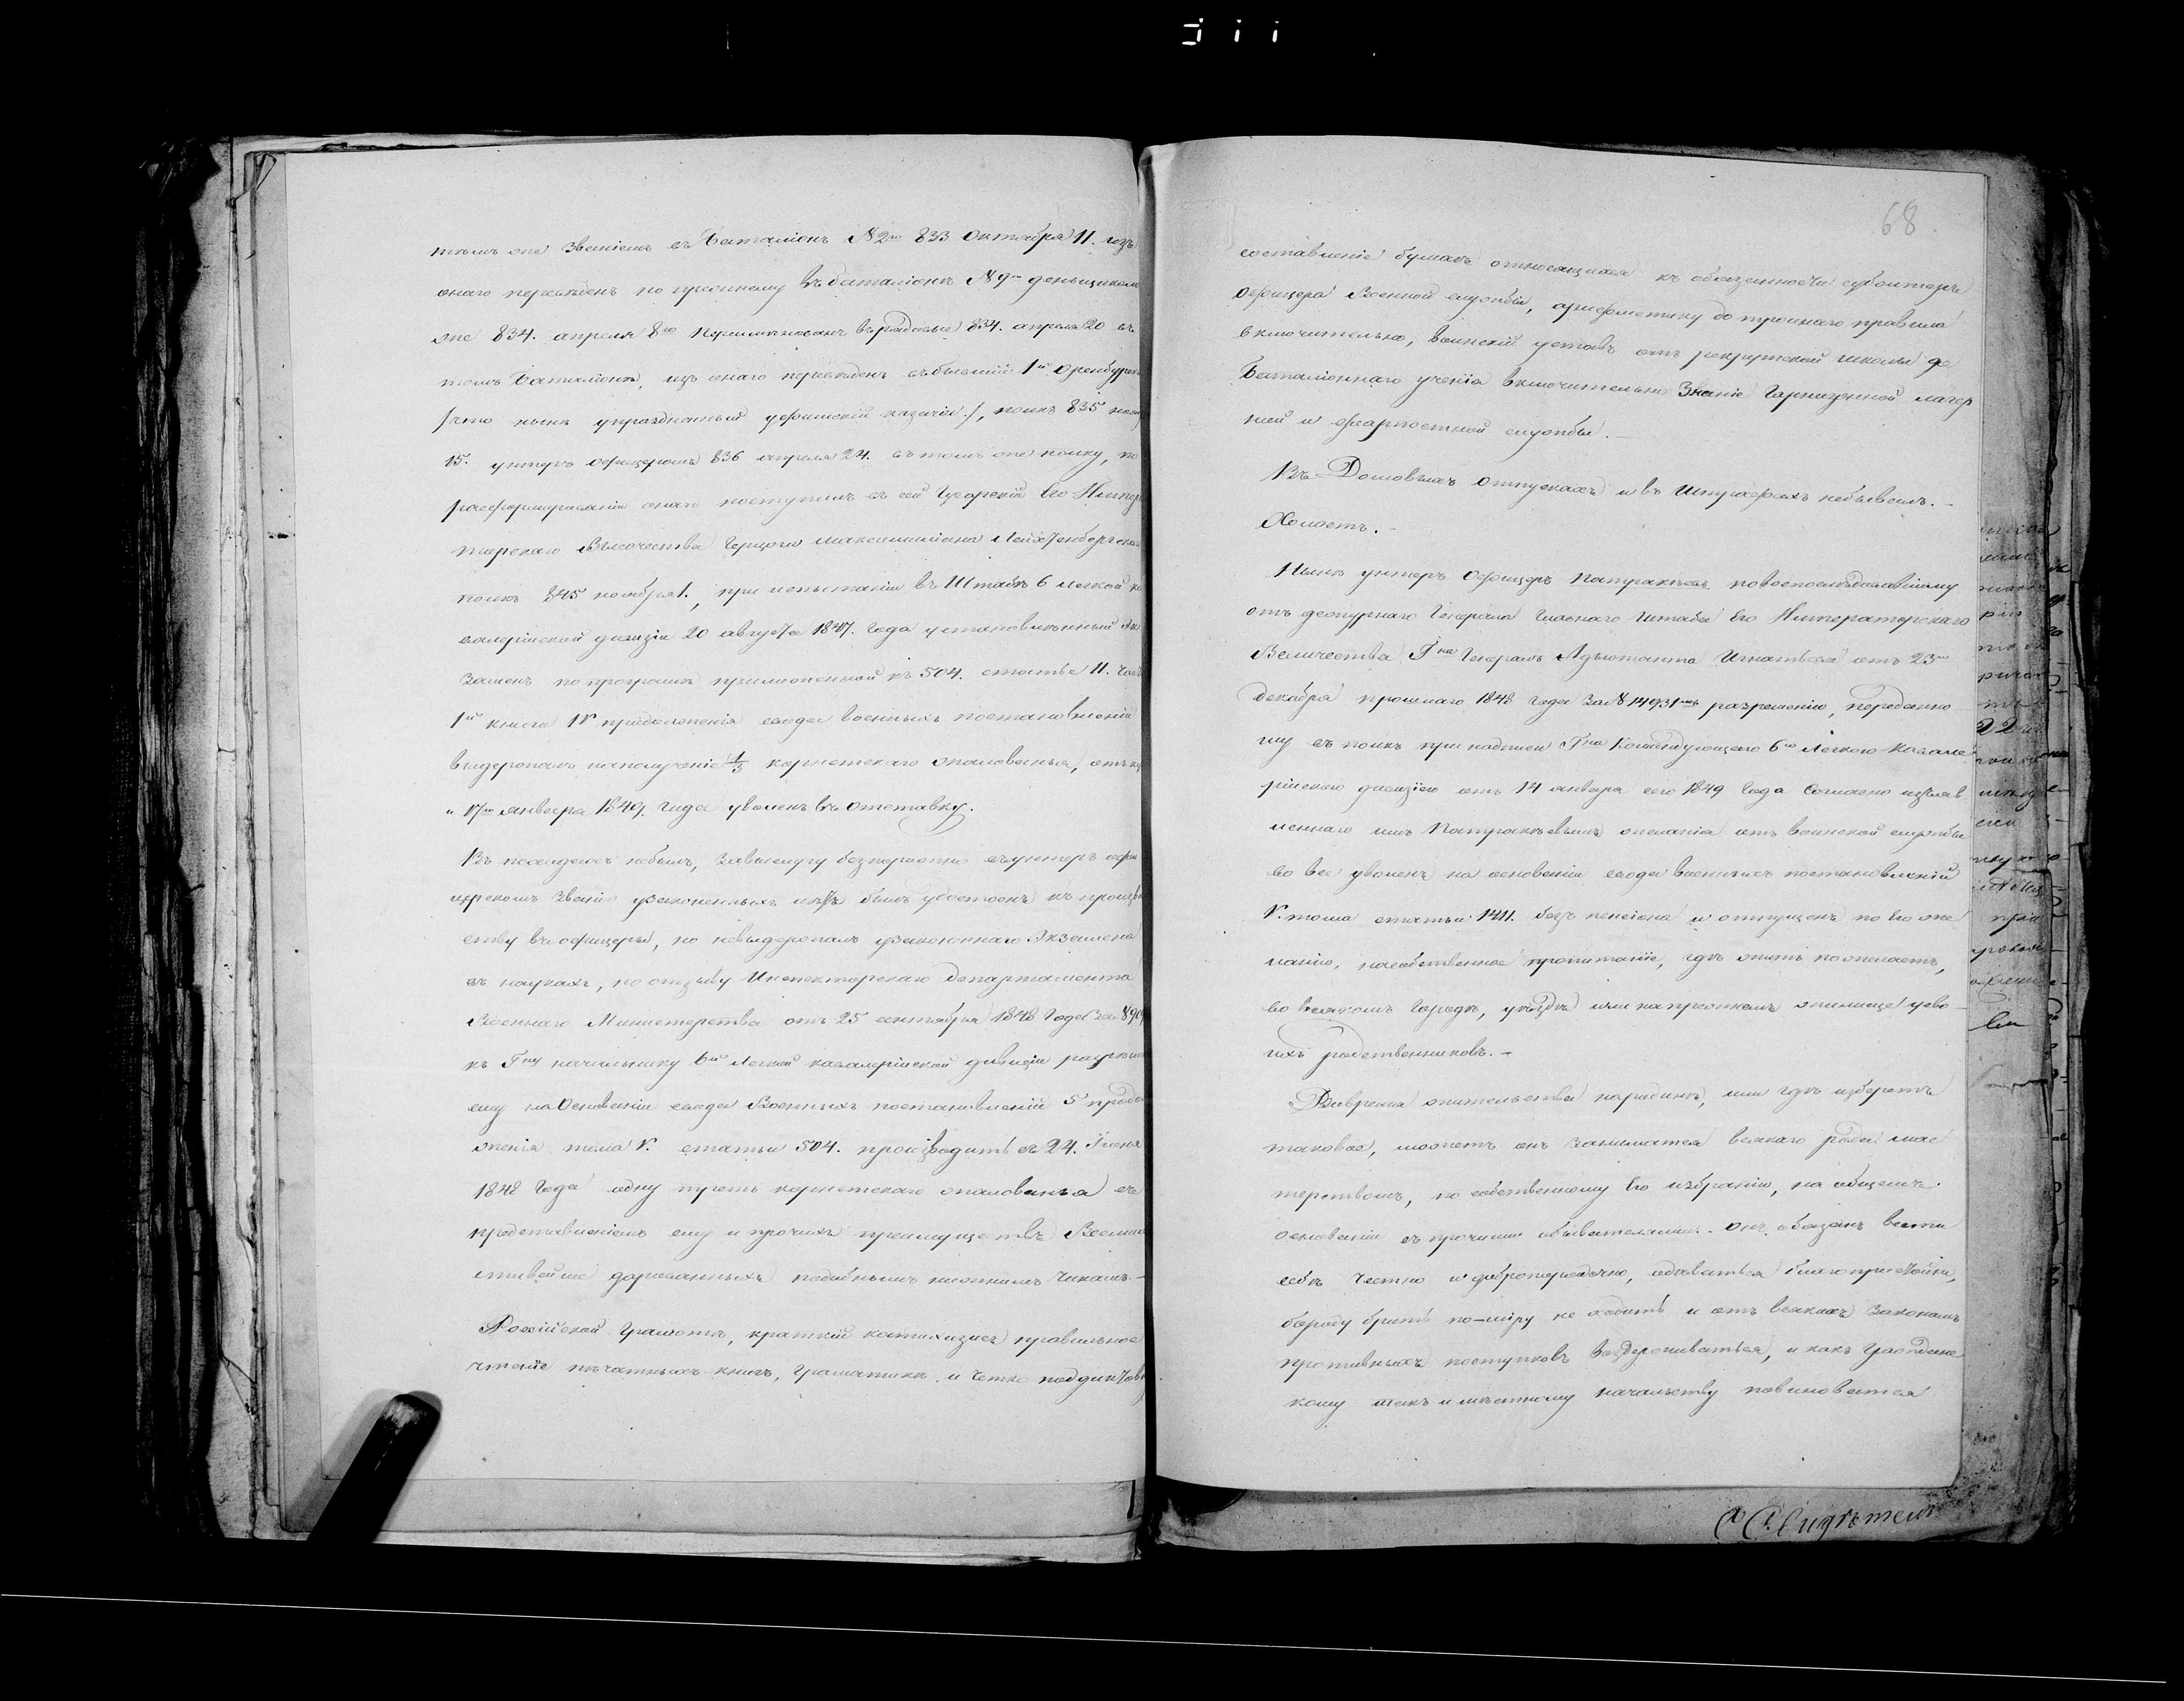 тѣмъ же званіемъ въ Баталіонъ №2го 833 Октября 11. изъ
онаго переведенъ по прежнему въ баталіонъ №9го деньщикомъ
же 834. апреля 8го переименованъ въ рядовые 834. апреля 20 въ
томъ Баталіонѣ, изъ онаго переведенъ въ бывшій 1й Оренбургск
/что нынѣ упраздненный уфимскій казачій/, полкъ 835
15. унтеръ офицеромъ 836 апреля 24. въ томъ же полку, по
расформированіи онаго поступилъ въ сей Гусарскій Его Импера
торскаго Высочества Герцога Максимиліана Лейхтенбергскаго
полкъ 845 ноября 1., при испытаніи въ Штабѣ 6 легкой ка
валерійской дивизіи 20 августа 1847. года установленный эк
заменъ по програмѣ приложенной къ 504. статьѣ II. час
1й книга IV продолженія свода военныхъ постановленій
выдержалъ на полученіе 1/3 корнетскаго жалованья,
„17го января 1849. года уволенъ въ отставку.
Въ походахъ небылъ, за выслугу безпорочно въ унтеръ офи
церскомъ званіи узаконенныхъ лѣтъ былъ удостоенъ къ произв
ству въ офицеры, но невыдержалъ узаконеннаго Экзамена
въ наукахъ, по отзыву Инспекторскаго Департамента
Военнаго Министерства отъ 25 сентября 1848 Года за №
къ Гну начальнику 6й Легкой кавалерійской дивизіи разрѣш
ему на Основаніи свода Военныхъ постановленій 5 продо
лженія тома V. статьи 504. производить съ 24. Іюня
1848 Года одну треть корнетскаго жалованья съ
представленіемъ ему и прочихъ преимуществъ Всемил
стивейше дарованныхъ подобнымъ нижнимъ чинамъ.-
Россійской Грамотѣ, краткій катихизисъ правильное
чтеніе печатныхъ книгъ, грамматикѣ и четко под диктовк
68.
составленіе бумагъ относящихся къ обязанности субъ
Офицера Военной службы, арифметику до тройнаго правила
включительно, воинскій уставъ отъ рекрутской школы до
Баталіоннаго ученія включительно Знаніе Гарнизонной лагер
ней и форпостной службы.-
Въ Домовыхъ отпускахъ и въ Штрафахъ небывалъ.-
Холостъ.-
Нынѣ унтеръ Офицеръ Патракѣевъ по воспослѣдовавшему
отъ дежурнаго Генерала Главнаго Штаба Его Императорскаго
Величества Гна Генералъ Адъютанта Игнатьева отъ 23го
декабря прошлаго 1848 года за № 14931мъ разрешенію, переданно
му въ полкъ при надписи Гна Командующаго 6ю Легкою кавале
рійскою дивизіею отъ 14 января сего 1849 года Согласно изъяв
леннаго имъ Патракѣевымъ желанія отъ воинской службы
во все уволенъ на основаніи свода военныхъ постановленій
V. тома статьи 1411. безъ пенсіона и отпущенъ по его же
ланію, на собственное пропитаніе, гдѣ жить пожелаетъ,
во всякомъ городѣ, уѣздѣ или на прежнемъ жилище у сво
ихъ родственниковъ.-
Вовремя жительства народинѣ, или гдѣ изберетъ
таковое, можетъ онъ заниматся всякаго рода мас
терствомъ, по собственному его избранію, на общемъ
основаніи съ прочими обывателями. Онъ обязанъ вести
себя честно и добропорядочно, одѣваться благопристойно,
бороду брить по-міру не ходить и отъ всякихъ законамъ
противныхъ поступковъ воздерживаться, и какъ Граждане
кому такъ и мѣстному начальству повиноватся